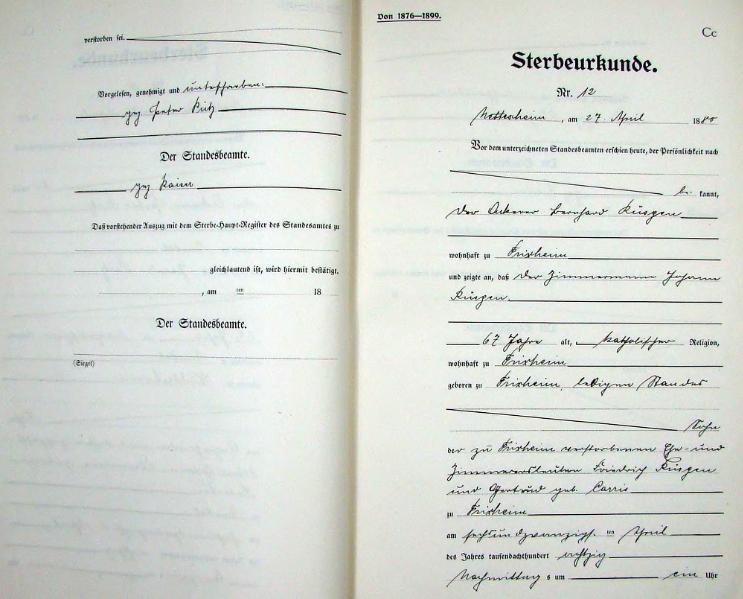 verstorben sei.
Vorgelesen, genehmigt und unterschrieben:
gez Peter
Der Standesbeamte.
gez
Daß vorstehender Auszug mit dem Sterbe-Haupt-Register des Standesamtes zu
gleichlautend ist, wird hiermit bestätigt.
, am ten 18
Der Standesbeamte.
(Siegel)
Von 1876—1899.
Cc
Sterbeurkunde.
Nr. 12
Nettersheim, am 27. April 1880
Vor dem unterzeichneten Standesbeamten erschien heute, der Persönlichkeit nach
be kannt,
Der Ackerer Bernhard Küpgen
wohnhaft zu Frixheim
und zeigte an, daß der Zimmermann Johann
Küpgen
67 Jahre alt, katholischer Religion,
wohnhaft zu Frixheim
geboren zu Frixheim, ledigen Standes
Sohn
der zu Frixheim verstorbenen Ehe- und
Zimmersleuten Friedrich Küpgen
und Gertrud geb.
zu Frixheim
am sechsundzwanzigst. ten April
des Jahres tausendachthundert achtzig
Nachmittags um ein Uhr